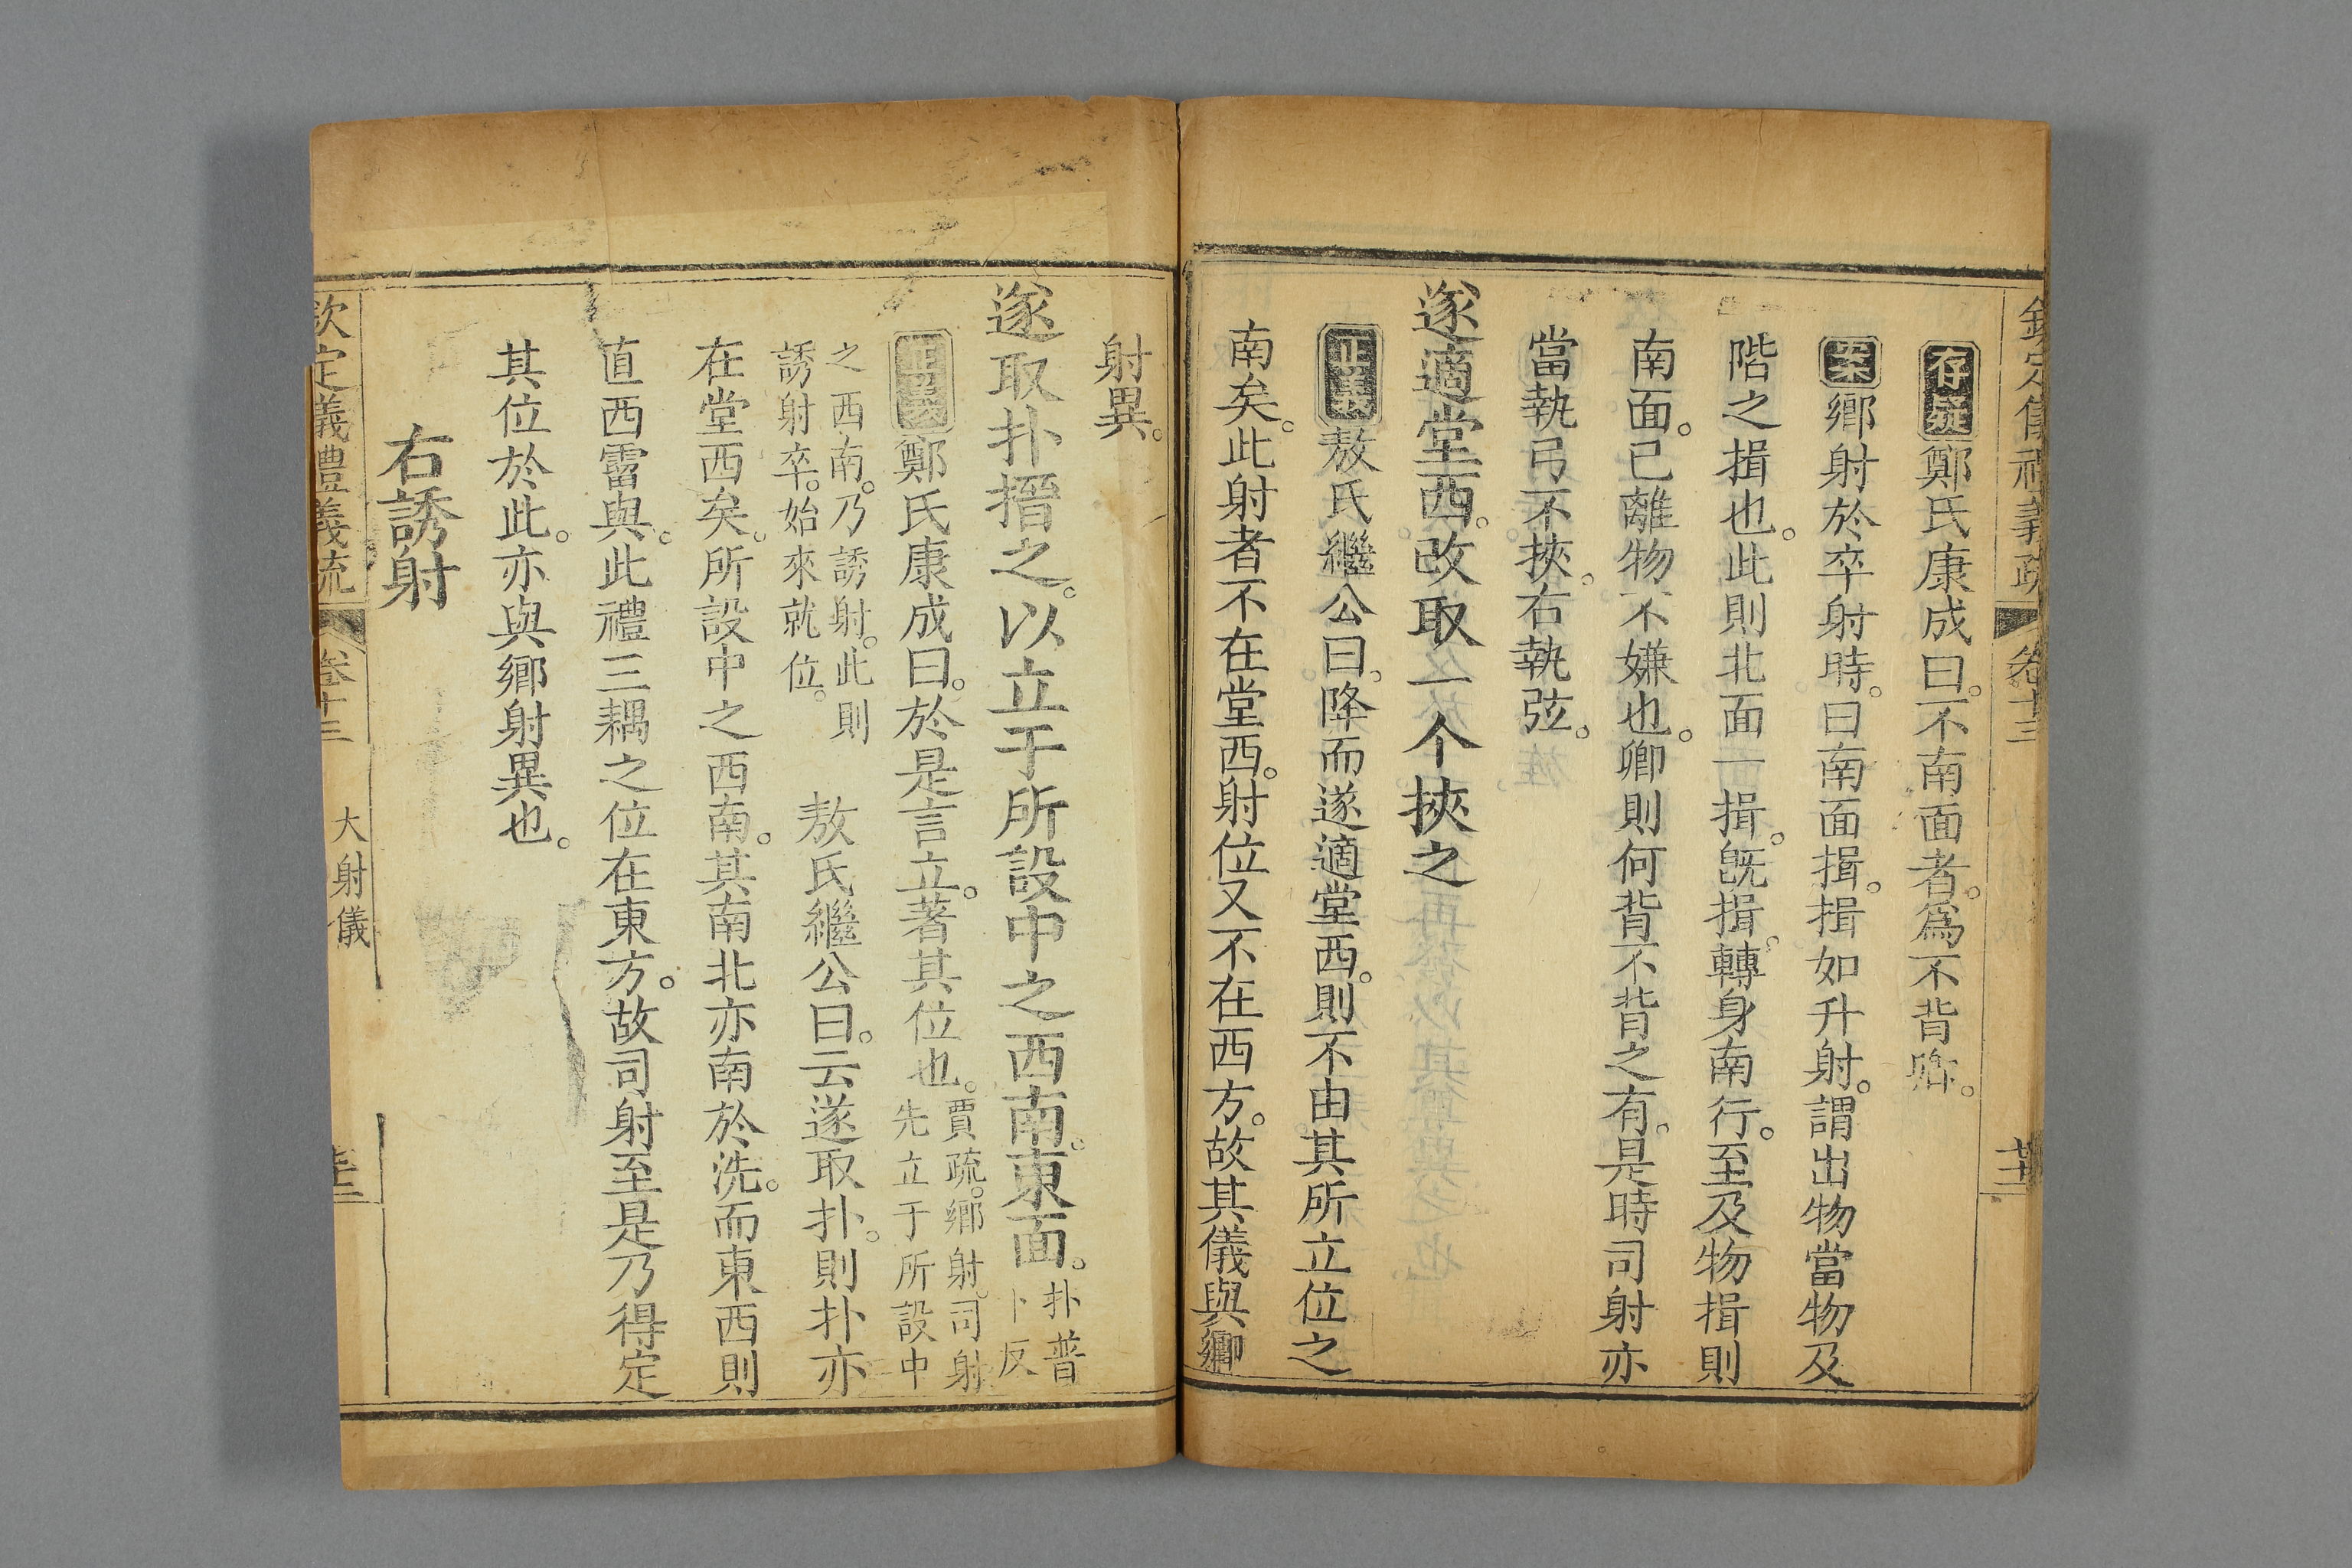 欽定儀禮義疏 卷十三
存疑鄭氏康成曰。不南面者。為不背卿。
案鄉射於卒射時。曰南面揖。揖如升射。謂出物當物及
階之揖也。此則北面一揖。旣揖。轉身南行。至及物揖則
南面。已離物不嫌也。卿則何背不背之有。是時司射亦
當執弓不挾。右執弦。
遂適堂西。改取一个挾之
正義敖氏繼公曰。降而遂適堂西。則不由其所立位之
南矣。此射者不在堂西。射位又不在西方。故其儀與鄉
射異。
遂取扑搢之。以立于所設中之西南。東面。扑普
卜反
正義鄭氏康成曰。於是言立。著其位也。賈疏。鄉射。司射
先立于所設中
之西南。乃誘射。此則
誘射卒。始來就位。
敖氏繼公曰。云遂取扑。則扑亦
在堂西矣。所設中之西南。其南北亦南於洗。而東西則
直西霤與。此禮三耦之位在東方。故司射至是乃得定
其位於此。亦與鄉射異也。
右誘射
欽定義禮義疏 卷十三 大射儀